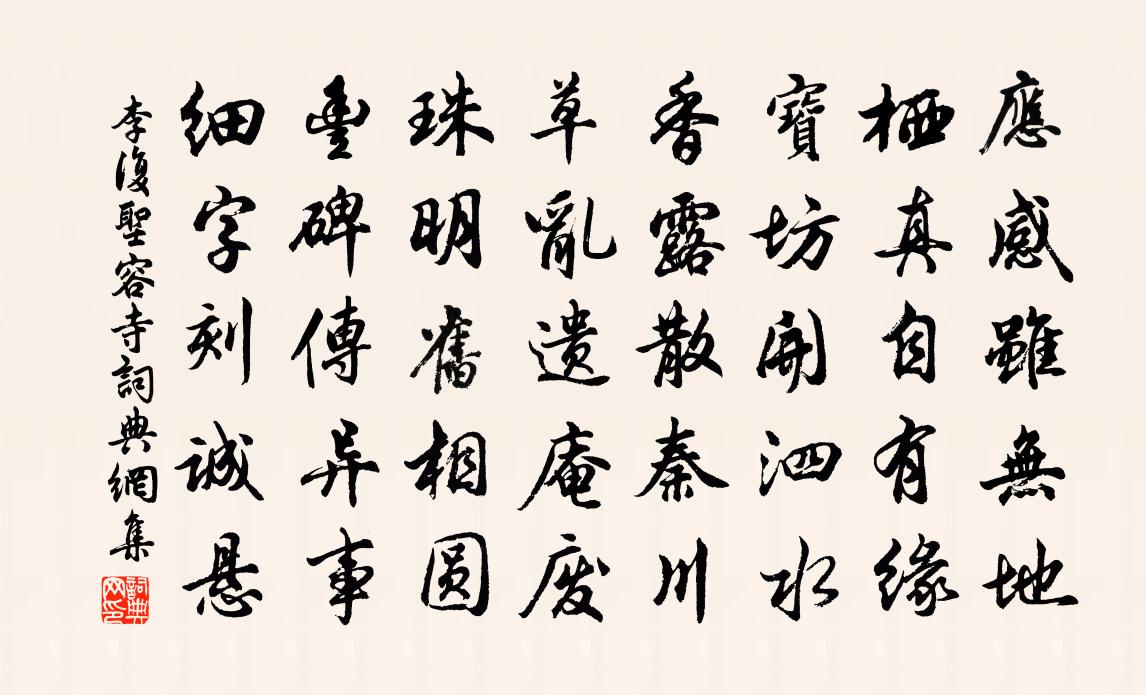 應感雖無地
栖真自有緣
寶坊開泗水
香露散秦川
草亂遺庵废
珠明舊相圆
豊碑傳异事
细字刻誠悬
李復聖容寺詞典網集
詞典网印